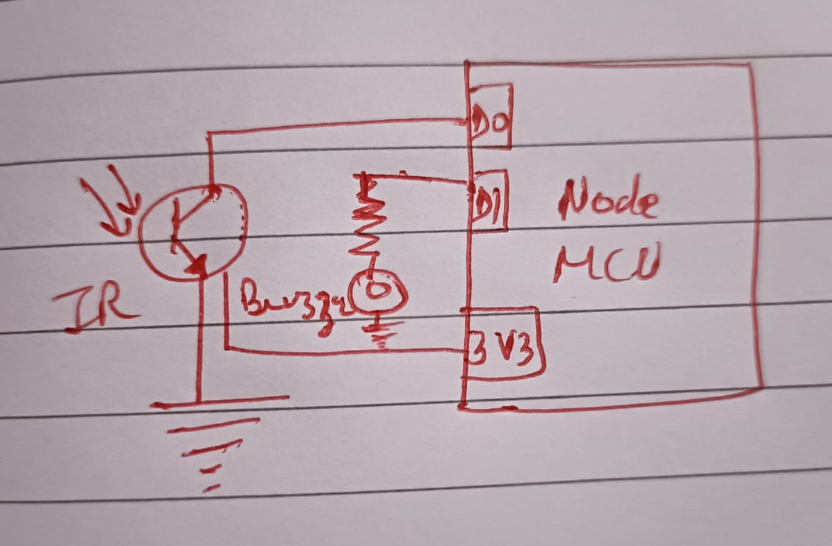 D0
D1
Node
MCU
IR
Buzzer
3V3